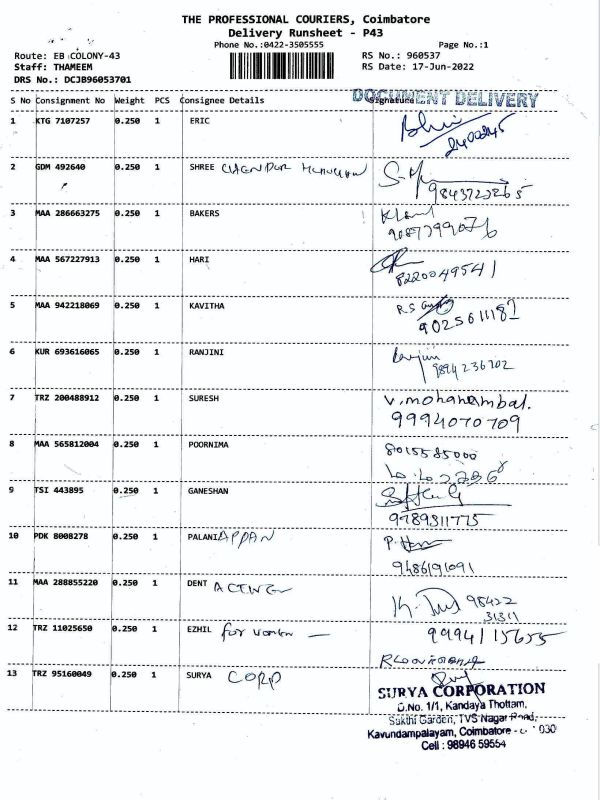 THE PROFESSIONAL COURIERS, Coimbatore
Delivery Runsheet - P43
Phone No.:0422-3505555 Page No.:1
Route: EB COLONY-43 RS No.: 960537
Staff: THAMEEM RS Date: 17-Jun-2022
DRS No.: DCJB96053701
DOCUMENT DELIVERY
S No Consignment No Weight PCS Consignee Details Signature
1 KTG 7107257 0.250 1 ERIC
2 GDM 492640 0.250 1 SHREE
9843722265
3 MAA 286663275 0.250 1 BAKERS
9087799076
4 MAA 567227913 0.250 1 HARI
8220049541
5 MAA 942218069 0.250 1 KAVITHA
9025611182
6 KUR 693616065 0.250 1 RANJINI
9894236702
7 TRZ 200488912 0.250 1 SURESH V.mohanambal.
9994070709
8 MAA 565812004 0.250 1 POORNIMA 8015585000
9 TSI 443895 0.250 1 GANESHAN
9789311775
10 PDK 8008278 0.250 1 PALANIAPPAN
9486191091
11 MAA 288855220 0.250 1 DENT ACTIVE
98422
31311
12 TRZ 11025650 0.250 1 EZHIL for women 9994115655
13 TRZ 95160049 0.250 1 SURYA CORP
SURYA CORPORATION
D.No. 1/1, Kandaya Thottam,
Sakthi Garden, TVS Nagar Road,
Kavundampalayam, Coimbatore - 030
Cell : 98946 59554